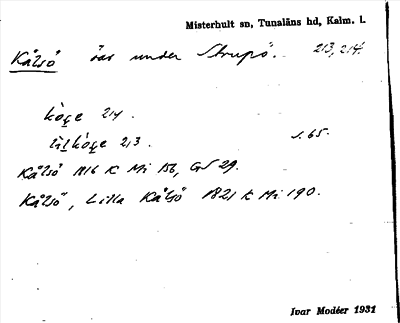 Misterhult sn, Tunaläns hd, Kalm. l.
Kålsö öar under Strupö. 213, 214.
214.
213. s. 65.
Kålsö 1816 K Mi 156, GS 29.
Kålsö, Lilla Kålsö 1821 K Mi 190.
Ivar Modéer 1931